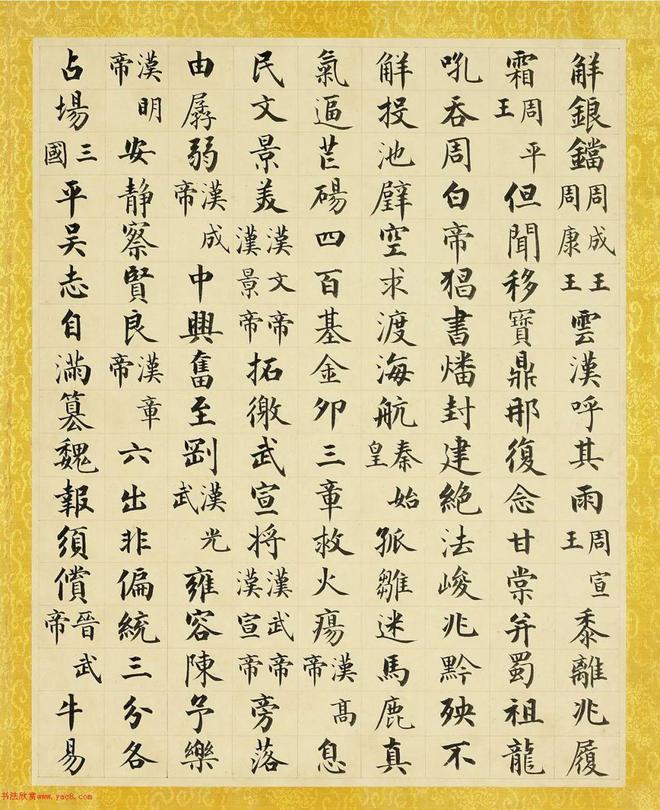 觧銀鐺周成王周康王雲漢呼其雨周宣王黍離兆履
霜周平王但聞移寶鼎那復念甘棠并蜀祖龍
吼吞周白帝猖書燔封建絕法峻兆黔殃不
觧投池璧空求渡海航秦始皇孤雛迷馬鹿真
氣逼芒碭四百基金卯三章救火瘍漢高帝息
民文景羙漢文帝漢景帝拓徼武宣将漢武帝漢宣帝旁落
由孱弱漢成帝中興奮至劉漢光武雍容陳予樂
漢明帝安静察賢良漢章帝六出非偏統三分各
占場三國平吳志自滿篡魏報須償晉武帝牛易
书法欣赏www.yac8.com